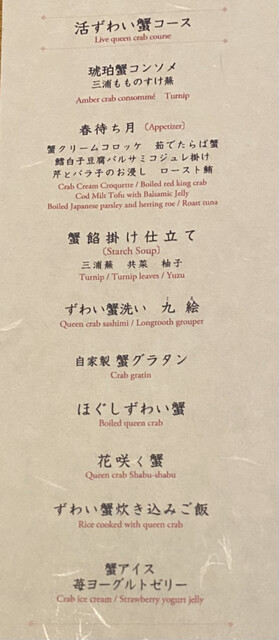 活ずわい蟹コース
Live queen crab course
琥珀蟹コンソメ
三浦もものすけ蕪
Amber crab consommé Turnip
春待ち月 (Appetizer)
蟹クリームコロッケ 茹でたらば蟹
鱈白子豆腐バルサミコジュレ掛け
芹とバラ子のお浸し ロースト鮪
Crab Cream Croquette / Boiled red king crab
Cod Milt Tofu with Balsamic Jelly
Boiled Japanese parsley and herring roe / Roast tuna
蟹餡掛け仕立て
(Starch Soup)
三浦蕪 共菜 柚子
Turnip / Turnip leaves / Yuzu
ずわい蟹洗い 九絵
Queen crab sashimi / Longtooth grouper
自家製 蟹グラタン
Crab gratin
ほぐしずわい蟹
Boiled queen crab
花咲く蟹
Queen crab Shabu-shabu
ずわい蟹炊き込みご飯
Rice cooked with queen crab
蟹アイス
苺ヨーグルトゼリー
Crab ice cream / Strawberry yogurt jelly